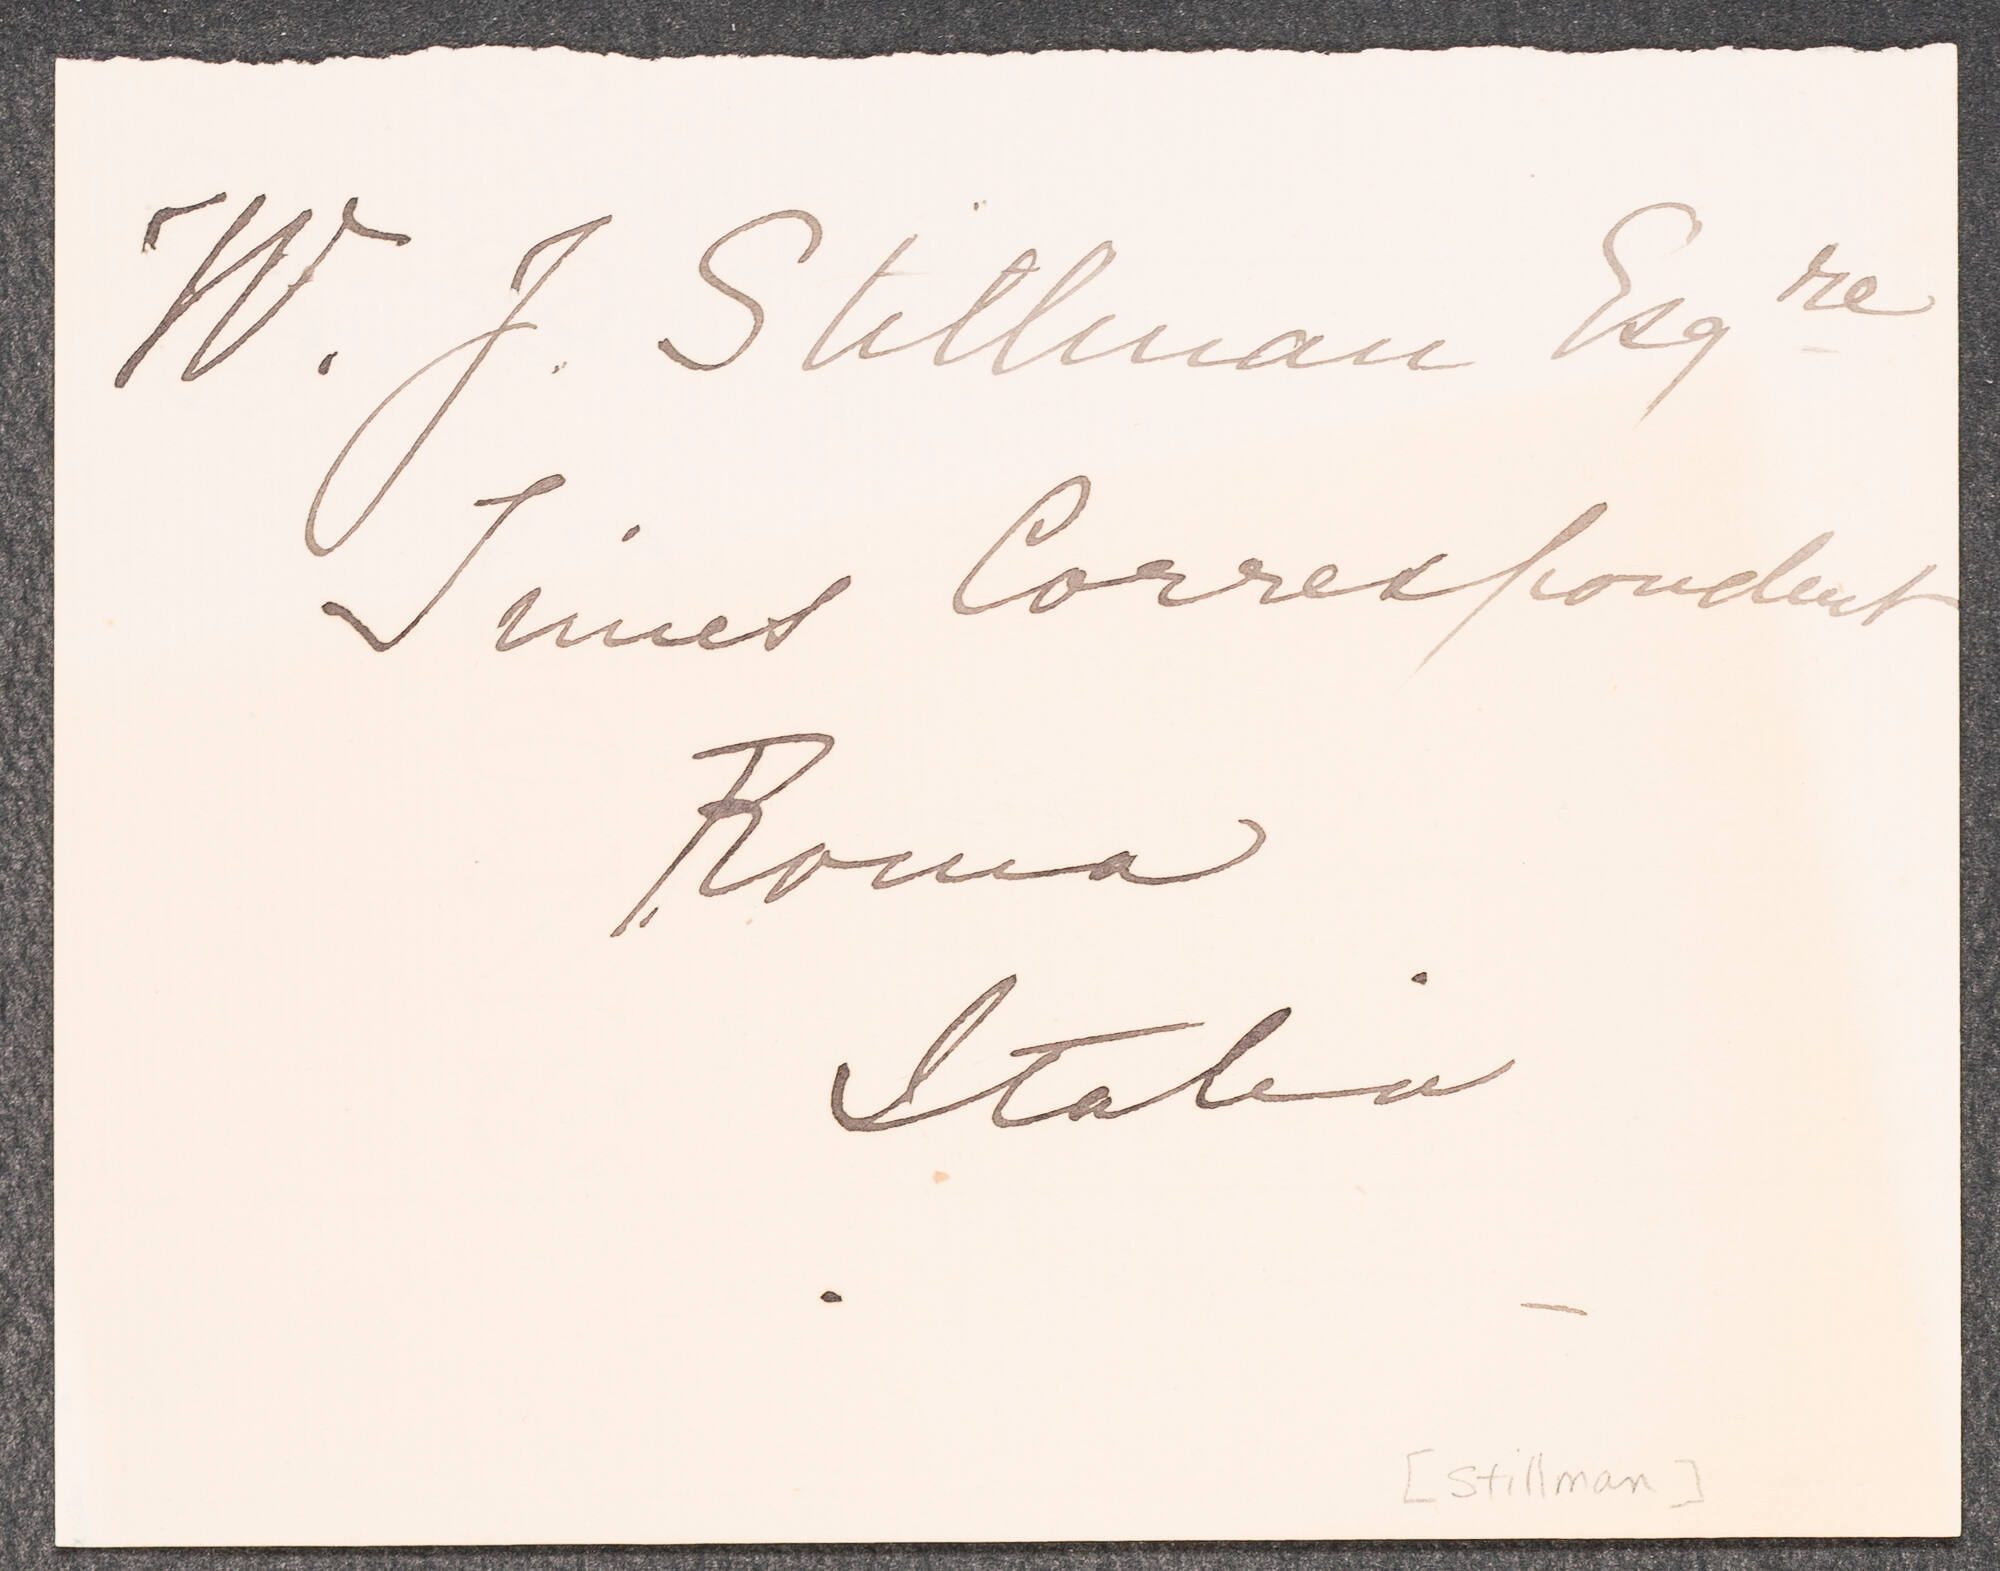 W. J. Stillman Esqre
Times Correspondent
Roma
Italia
[Stillman]